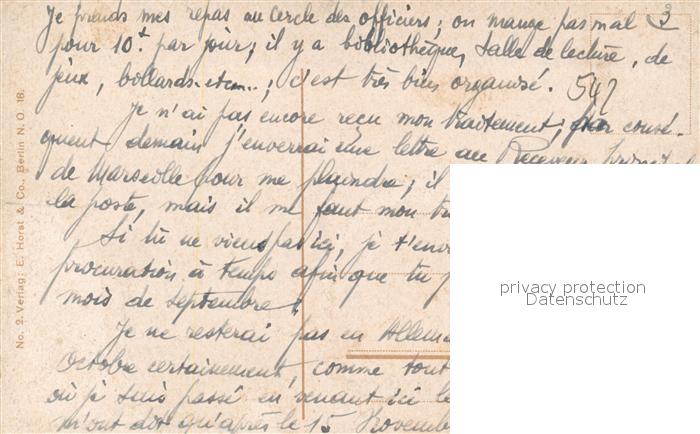 Je prends mes repas au cercle des officiers; on mange pas mal 3
pour 10f par jour; il y a bibliothèque, salle de lecture, de
jeux, billards etc...; c'est très bien organisé. 547
Je n'ai pas encore reçu mon traitement; par consé-
quent demain j'enverrai une lettre au Receveur
de Marseille pour me plaindre; il
la poste, mais il me faut mon
Si tu ne viens pas ici, je t'env
procuration à temps afin que tu
mois de septembre
Je ne resterai pas en Allema
Octobre certainement, comme tout
où je suis passé en venant ici le
m'ont dit qu'après le 15 Novemb
No. 2. Verlag: E. Horst & Co., Berlin N.O. 18.
privacy protection
Datenschutz